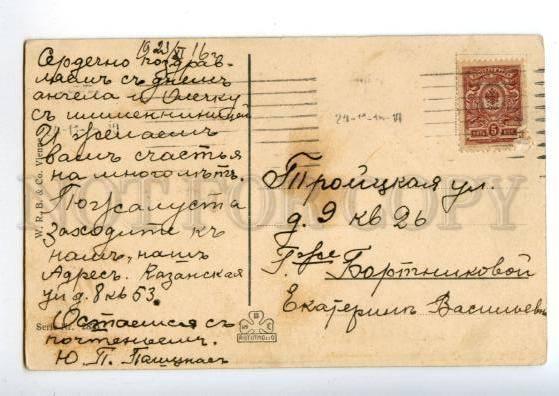 19 23/XI 16 г.
Сердечно поздрав-
ляемъ съ днемъ
ангела и Олечку
съ именинницей
и желаемъ
вамъ счастья
на многолѣтъ.
Пожалуста
заходите къ
намъ, нашъ
Адресъ. Казанская
ул д. 8 кв 53.
Остаемся съ
почтеньемъ.
Ю. П.
W. R. B. & Co, Vienne
Тройцкая ул.
д. 9 кв 26
Г-же Бортниковой
Екатеринѣ Васильевнѣ
5 КОП
NOT FOR COPY